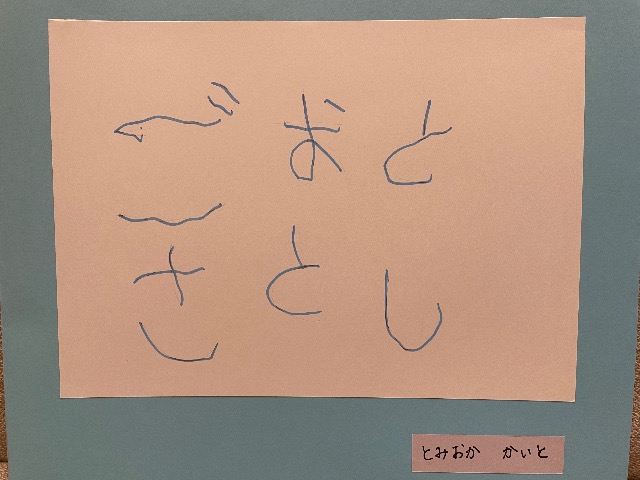 とし
おと
ごさ
とみおか　かいと